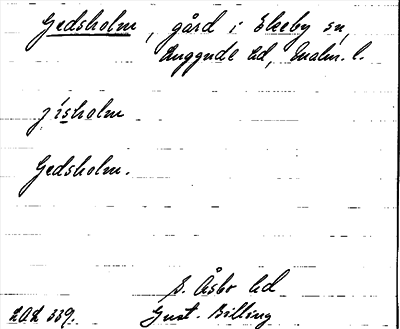 Gedsholm, gård i Ekeby sn,
Luggude hd, Malm. l.
jisholm
Gedsholm.
S. Åsbo hd
Gust. Billing